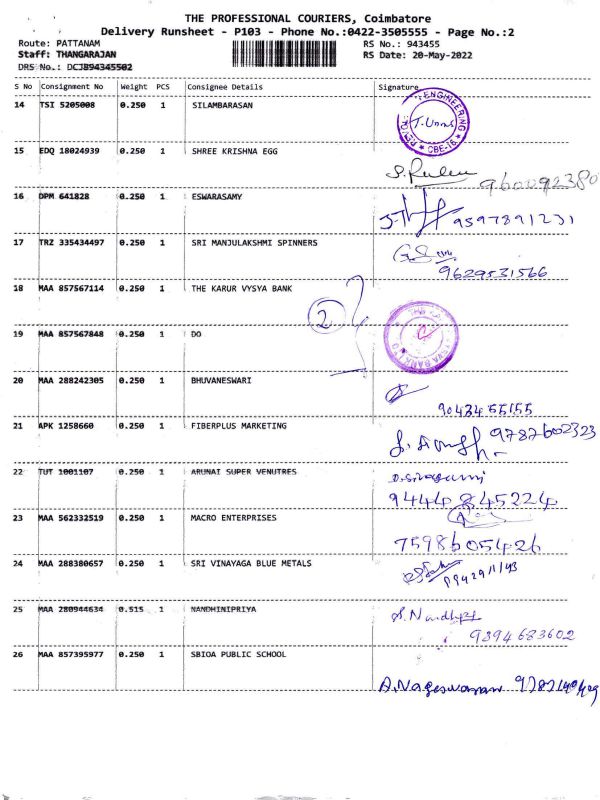 THE PROFESSIONAL COURIERS, Coimbatore
Delivery Runsheet - P103 - Phone No.:0422-3505555 - Page No.:2
Route: PATTANAM RS No.: 943455
Staff: THANGARAJAN RS Date: 20-May-2022
DRS No.: DCJB94345502
S No Consignment No Weight PCS Consignee Details Signature
14 TSI 5205008 0.250 1 SILAMBARASAN
ENGINEERING
CBE-16
15 EDQ 18024939 0.250 1 SHREE KRISHNA EGG
960092380
16 DPM 641828 0.250 1 ESWARASAMY
9597891231
17 TRZ 335434497 0.250 1 SRI MANJULAKSHMI SPINNERS
9629531566
18 MAA 857567114 0.250 1 THE KARUR VYSYA BANK
2
19 MAA 857567848 0.250 1 DO
20 MAA 288242305 0.250 1 BHUVANESWARI
9043455155
21 APK 1258660 0.250 1 FIBERPLUS MARKETING
9787602323
22 TUT 1001107 0.250 1 ARUNAI SUPER VENUTRES
9444845224
23 MAA 562332519 0.250 1 MACRO ENTERPRISES
7598605426
24 MAA 288380657 0.250 1 SRI VINAYAGA BLUE METALS
25 MAA 280944634 0.515 1 NANDHINIPRIYA
9394683602
26 MAA 857395977 0.250 1 SBIOA PUBLIC SCHOOL
A.Nageswaran